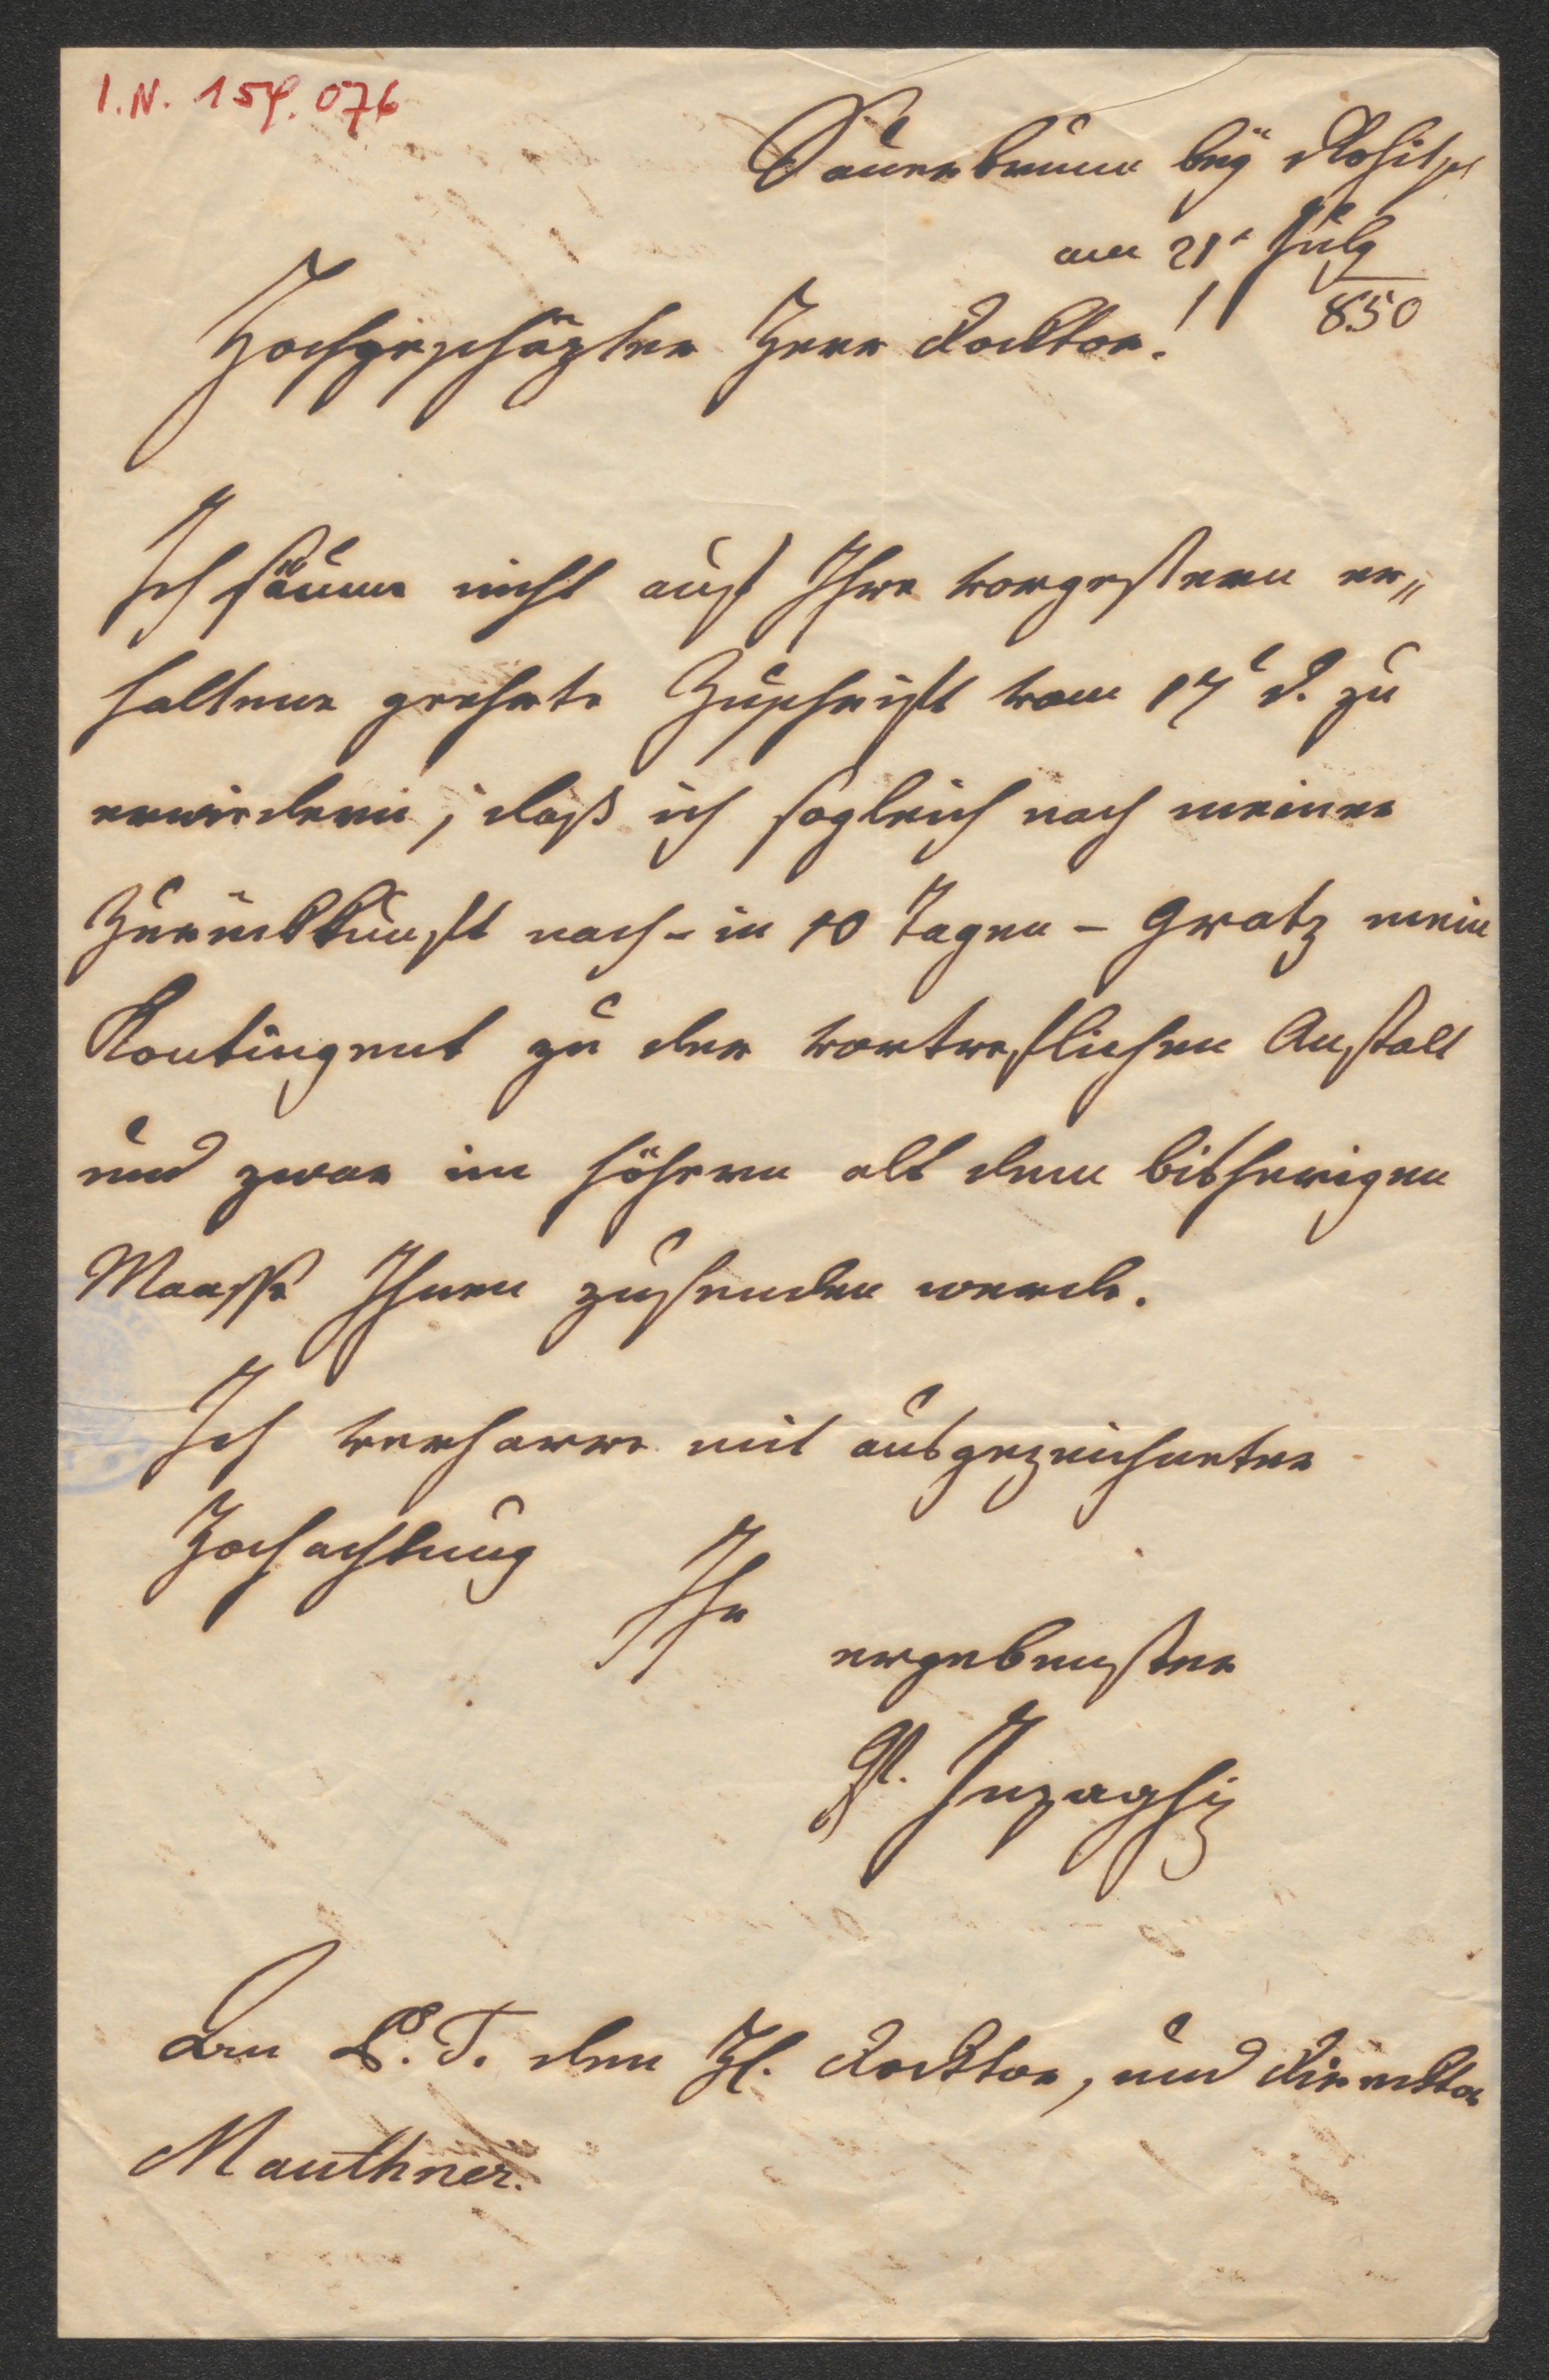 I.N. 159.076
Sauerbrunn bey Rohitsch
am 21t July
850
Hochgeschäzter Herr Docktor!
Ich säume nicht auf Ihre vorgestern er„
haltene geehrte Zuschrift vom 17t d. zu
erwiedern, daß ich sogleich nach meiner
Zurückkunft nach - in 10 Tagen - Gratz mein
Kontingent zu der vortreflichen Anstalt
und zwar im höhern als dem bisherigen
Maasse Ihnen zusenden werde.
Ich verharre mit ausgezeichneter
Hochachtung
Ihr
ergebenster
Gf. Inzaghi
An P. T. den H. Docktor, und Direcktor
Mauthner.